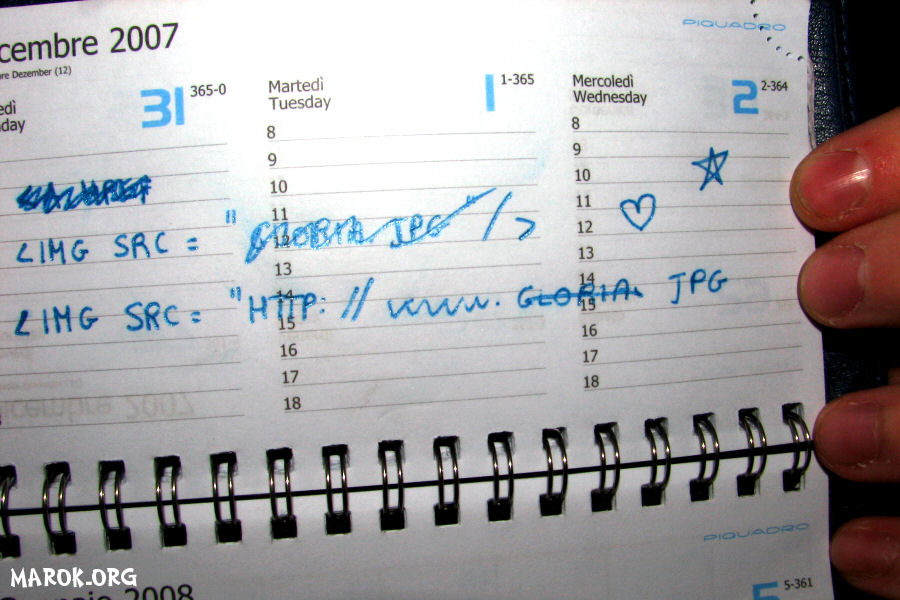 cembre 2007
PIQUADRO
re Dezember (12)
edì
day
31
365-0
Martedì
Tuesday
1
1-365
Mercoledì
Wednesday
2
2-364
8
9
10
11
12
13
14
15
16
17
18
8
9
10
11
12
13
14
15
16
17
18
<IMG SRC = "GLORIA JPG" />
<IMG SRC = "HTTP: // www. GLORIA. JPG
PIQUADRO
Gennaio 2008
5
5-361
MAROK.ORG